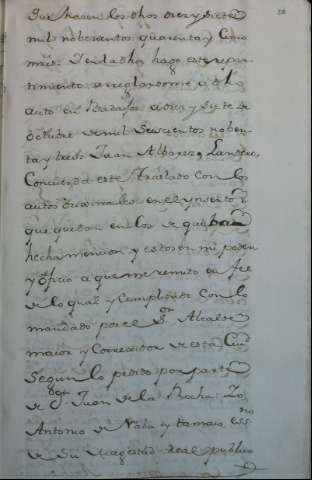 que hasen los dhos dies y siete
mil nobesientos quarenta y cinco
mrs. I en la dha hago este repar-
timiento arreglandome a dho
auto en Badajos a dies y siete de
octubre de mil seiscientos noben-
ta y tres Juan Albares Landero,
Concuerda este traslado con los
autos orixinales en el ynserto
que quedan en los de que ba
hecha mencion y estos en mi poder
y oficio a que me remito en fee
de lo qual y cumpliendo con lo
mandado por el Sor Alcalde
maior y Correxidor de esta Ciud
segun lo pedido por parte
de Dn Juan de la Rocha Yo
Antonio de Naba y tamaio essno
de Su Magestad Real publico